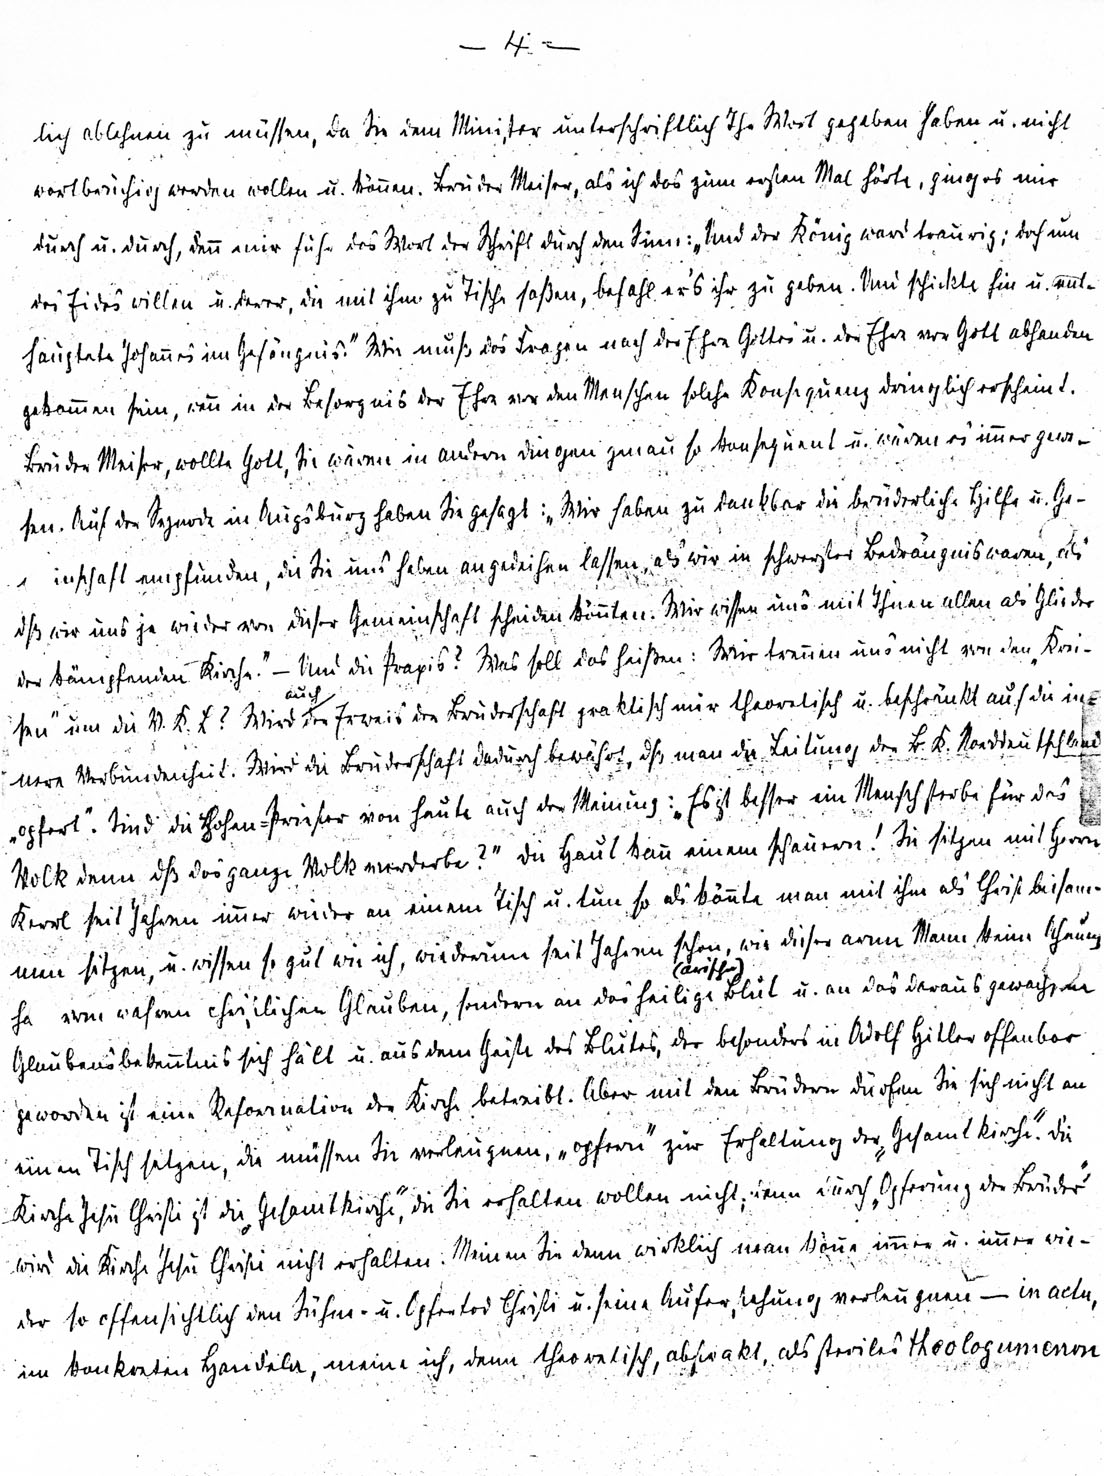 – 4 –
lich ablehnen zu müssen, da Sie dem Minister unterschriftlich Ihr Wort gegeben haben u. nicht
wortbrüchig werden wollen u. können. Bruder Meiser, als ich das zum ersten Mal hörte, ging es mir
durch u. durch, denn mir fuhr das Wort der Schrift durch den Sinn: „Und der König ward traurig; doch um
des Eides willen u. derer, die mit ihm zu Tische saßen, befahl er's ihr zu geben. Und schickte hin u. ent-
hauptete Johannes im Gefängnis." Wie muß das Fragen nach der Ehre Gottes u. der Ehre vor Gott abhanden
gekommen sein, wenn in der Besorgnis der Ehre vor den Menschen solche Konsequenz dringlich erscheint.
Bruder Meiser, wollte Gott, Sie wären in andern Dingen genau so konsequent u. wären es immer gewe-
sen. Auf der Synode in Augsburg haben Sie gesagt: „Wir haben zu dankbar die brüderliche Hilfe u. Ge-
inschaft empfunden, die Sie uns haben angedeihen lassen, als wir in schwerster Bedrängnis waren, als
dß wir uns je wieder von dieser Gemeinschaft scheiden könnten. Wir wissen uns mit Ihnen allen als Glieder
der kämpfenden Kirche." – Und die Praxis? Was soll das heißen: Wir trennen uns nicht von den „Krei-
sen" um die V.K.L? Wird auch der Erweis der Bruderschaft praktisch nur theoretisch u. beschränkt auf die in-
nere Verbundenheit. Wird die Bruderschaft dadurch bewährt, dß man die Leitung der B.K. Norddeutschland
„opfert". Sind die Hohen-Priester von heute auch der Meinung: „Es ist besser ein Mensch sterbe für das
Volk denn dß das ganze Volk verderbe?" Die Haut kann einem schauern! Sie sitzen mit Herrn
Kerrl seit Jahren immer wieder an einem Tisch u. tun so als könnte man mit ihm als Christ beisam-
men sitzen, u. wissen so gut wie ich, wiederum seit Jahren schon, wie dieser arme Mann keine Ahnung
ha vom wahren christlichen Glauben, sondern an das heilige (arische) Blut u. an das daraus gewachsene
Glaubensbekenntnis sich hält u. aus dem Geiste des Blutes, der besonders in Adolf Hitler offenbar
geworden ist eine Reformation der Kirche betreibt. Aber mit den Brüdern dürfen Sie sich nicht an
einen Tisch setzen, die müssen Sie verleugnen, „opfern" zur Erhaltung der „Gesamtkirche". Die
Kirche Jesu Christi ist die „Gesamtkirche", die Sie erhalten wollen nicht; denn durch „Opferung der Brüder"
wird die Kirche Jesu Christi nicht erhalten. Meinen Sie denn wirklich man könne immer u. immer wie-
der so offensichtlich den Sühne- u. Opfertod Christi u. seine Auferstehung verleugnen – in actu,
im konkreten Handeln, meine ich, denn theoretisch, abstrakt, als steriles Theologumenon